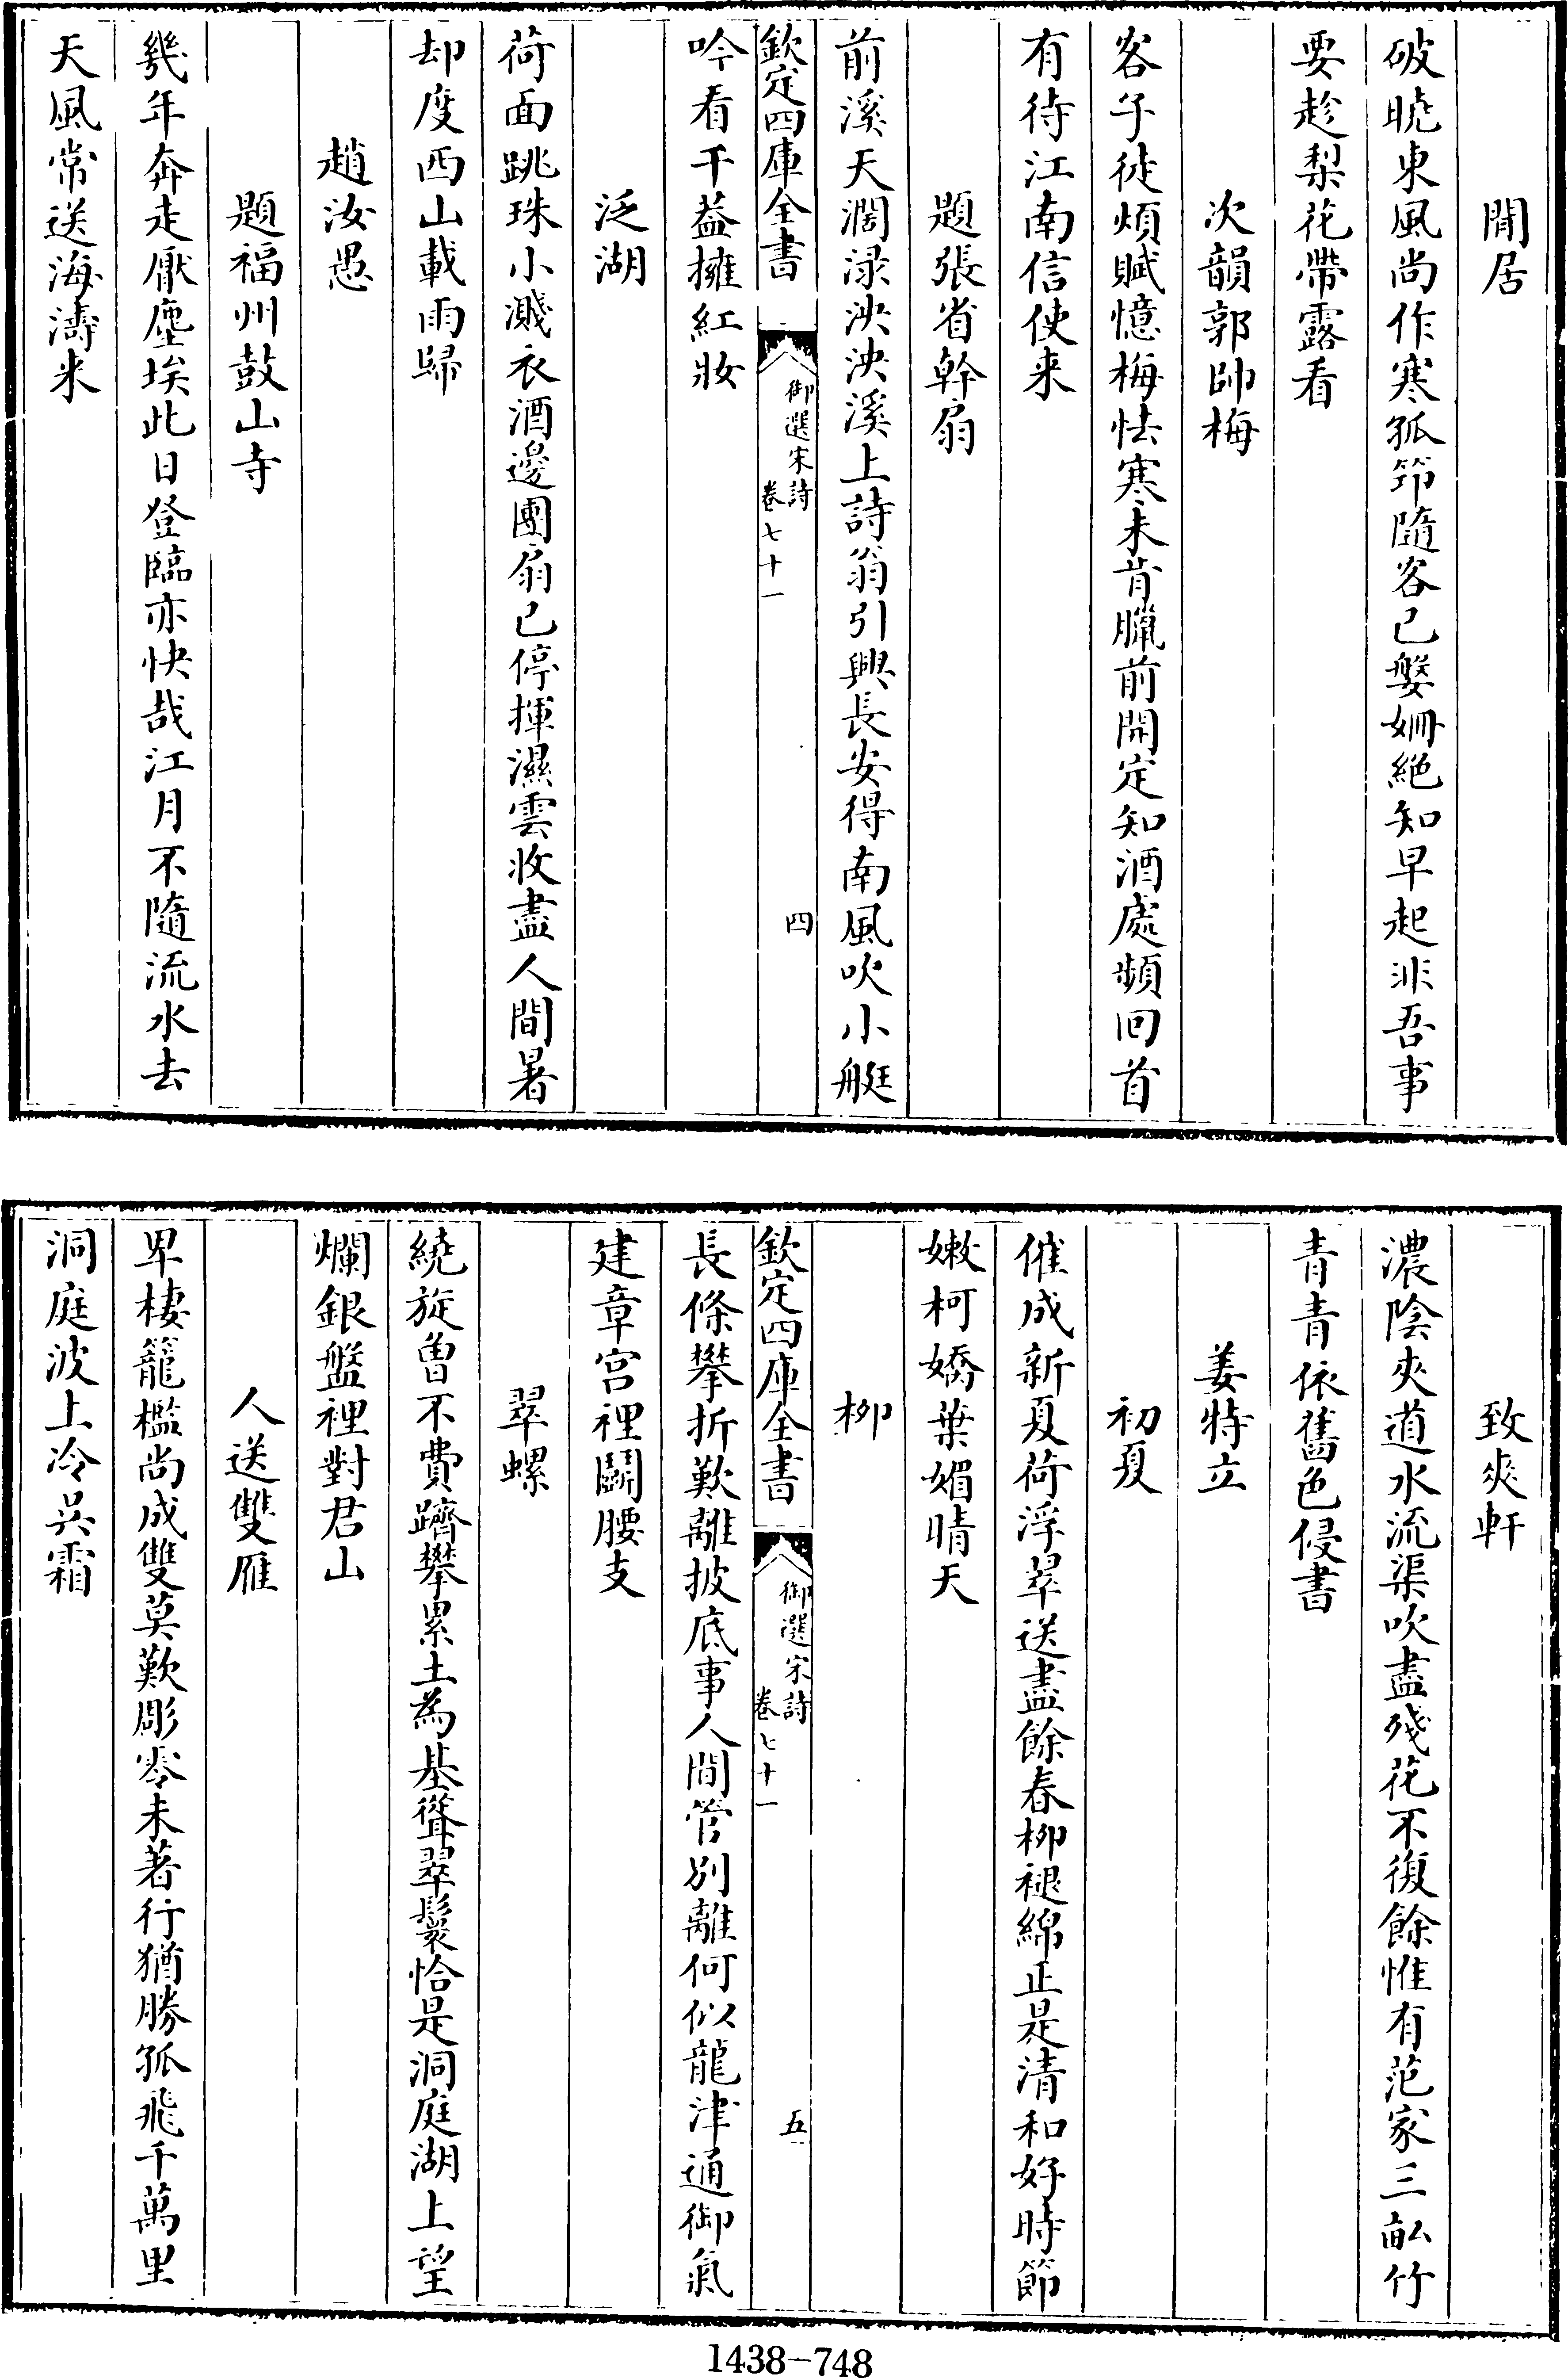 閒居
破曉東風尚作寒孤筇隨客已媻姍絶知早起非吾事
要趁梨花帶露看
次韻郭帥梅
客子徒煩賦憶梅怯寒未肯臘前開定知酒處頻回首
有待江南信使来
題張省幹扇
前溪天濶渌泱泱溪上詩翁引興長安得南風吹小艇
欽定四庫全書
御選宋詩
卷七十一
四
吟看千葢擁紅妝
泛湖
荷面跳珠小濺衣酒邊團扇已停揮濕雲收盡人間暑
却度西山載雨歸
趙汝愚
題福州鼓山寺
幾年奔走厭塵埃此日登臨亦快哉江月不隨流水去
天風常送海濤来
致爽軒
濃陰夾道水流渠吹盡殘花不復餘惟有范家三畝竹
青青依舊色侵書
姜特立
初夏
催成新夏荷浮翠送盡餘春栁褪綿正是清和好時節
嫩柯嬌葉媚晴天
栁
欽定四庫全書
御選宋詩
卷七十一
五
長條攀折歎離披底事人間管別離何似龍津通御氣
建章宫裡鬭腰支
翠螺
繞旋曾不費躋攀累土為基聳翠鬟恰是洞庭湖上望
爛銀盤裡對君山
人送雙雁
卑棲籠檻尚成雙莫歎彫零未著行猶勝孤飛千萬里
洞庭波上冷吳霜
1438-748